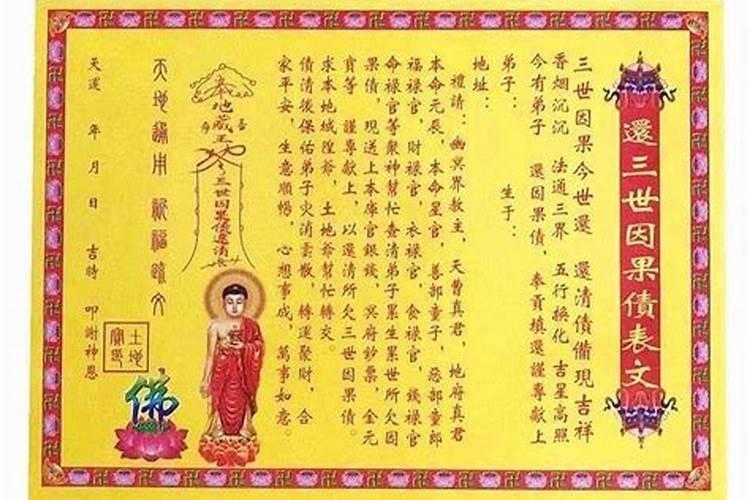 還三世因果債表文
三世因果今世還 還清債備現吉祥
香烟沉沉 法通三界 五行換化 吉星高照
今有弟子 還因果債，奉貢填還謹專獻上
弟子： 生于：
地址：
禮請：幽冥界教主，天曹真君，地府真君
本命元辰，本命星官，善部童子，惡部童郎
福祿官，財祿官，衣祿官，食祿官，錢祿官
命祿官等眾神幫忙查清弟子累生累世所欠因
果債，現送上本庫官銀錢，冥府鈔票，金元
寶等 謹專獻上，以還清所欠三世因果債。
求本地城隍爺，土地爺幫忙轉交。
債清後保佑弟子灾消雲散，轉運聚財，合
家平安，生意順暢，心想事成，萬事如意。
奉地藏王
三世因果債還清
天地通用 祈福疏文
天運 年 月 日 吉時 叩謝神恩
土地
佛